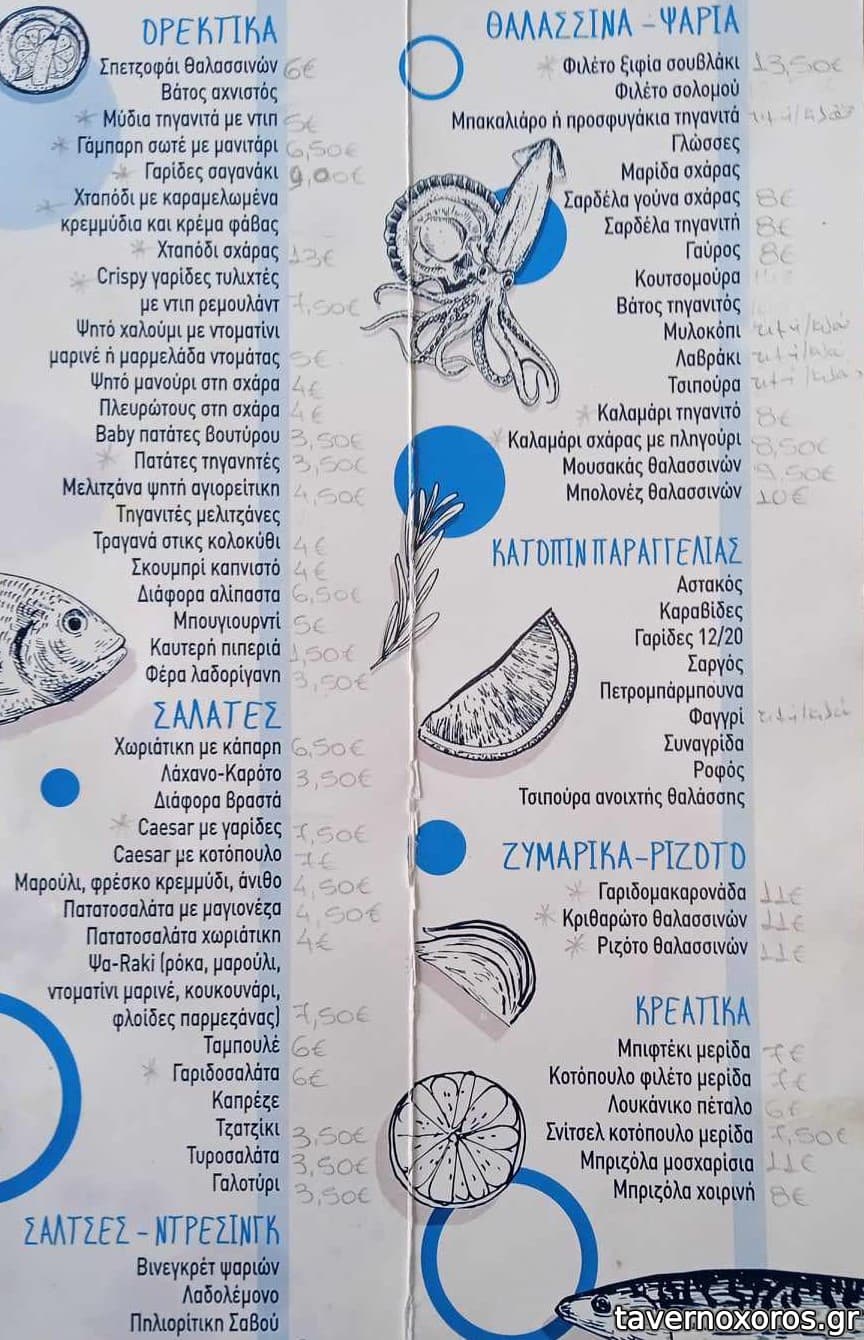 ΟΡΕΚΤΙΚΑ
Σπετζοφάι θαλασσινών 6€
Βάτος αχνιστός
* Μύδια τηγανιτά με ντιπ 5€
* Γάμπαρη σωτέ με μανιτάρι 6,50€
* Γαρίδες σαγανάκι 9,00€
* Χταπόδι με καραμελωμένα
κρεμμύδια και κρέμα φάβας
* Χταπόδι σχάρας 13€
* Crispy γαρίδες τυλιχτές
με ντιπ ρεμουλάντ 7,50€
Ψητό χαλούμι με ντοματίνι
μαρινέ ή μαρμελάδα ντομάτας 5€
Ψητό μανούρι στη σχάρα 4€
Πλευρώτους στη σχάρα 4€
Baby πατάτες βουτύρου 3,50€
* Πατάτες τηγανητές 3,50€
Μελιτζάνα ψητή αγιορείτικη 4,50€
Τηγανιτές μελιτζάνες
Τραγανά στικς κολοκύθι 4€
Σκουμπρί καπνιστό 4€
Διάφορα αλίπαστα 6,50€
Μπουγιουρντί 5€
Καυτερή πιπεριά 1,50€
Φέρα λαδορίγανη 3,50€
ΣΑΛΑΤΕΣ
Χωριάτικη με κάπαρη 6,50€
Λάχανο-Καρότο 3,50€
Διάφορα βραστά
* Caesar με γαρίδες 7,50€
Caesar με κοτόπουλο 7€
Μαρούλι, φρέσκο κρεμμύδι, άνιθο 4,50€
Πατατοσαλάτα με μαγιονέζα 4,50€
Πατατοσαλάτα χωριάτικη 4€
Ψα-Raki (ρόκα, μαρούλι,
ντοματίνι μαρινέ, κουκουνάρι,
φλοίδες παρμεζάνας) 7,50€
Ταμπουλέ 6€
* Γαριδοσαλάτα 6€
Καπρέζε
Τζατζίκι 3,50€
Τυροσαλάτα 3,50€
Γαλοτύρι 3,50€
ΣΑΛΤΣΕΣ - ΝΤΡΕΣΙΝΓΚ
Βινεγκρέτ ψαριών
Λαδολέμονο
Πηλιορίτικη Σαβού
ΘΑΛΑΣΣΙΝΑ - ΨΑΡΙΑ
* Φιλέτο ξιφία σουβλάκι 13,50€
Φιλέτο σολομού
Μπακαλιάρο ή προσφυγάκια τηγανιτά τιμή/κιλό
Γλώσσες
Μαρίδα σχάρας
Σαρδέλα γούνα σχάρας 8€
Σαρδέλα τηγανιτή 8€
Γαύρος 8€
Κουτσομούρα
Βάτος τηγανιτός
Μυλοκόπι τιμή/κιλό
Λαβράκι τιμή/κιλό
Τσιπούρα τιμή/κιλό
* Καλαμάρι τηγανιτό 8€
* Καλαμάρι σχάρας με πληγούρι 8,50€
Μουσακάς θαλασσινών 9.50€
Μπολονέζ θαλασσινών 10€
ΚΑΤΟΠΙΝ ΠΑΡΑΓΓΕΛΙΑΣ
Αστακός
Καραβίδες
Γαρίδες 12/20
Σαργός
Πετρομπάρμπουνα
Φαγγρί τιμή/κιλό
Συναγρίδα
Ροφός
Τσιπούρα ανοιχτής θαλάσσης
ΖΥΜΑΡΙΚΑ-ΡΙΖΟΤΟ
* Γαριδομακαρονάδα 11€
* Κριθαρώτο θαλασσινών 11€
* Ριζότο θαλασσινών 11€
ΚΡΕΑΤΙΚΑ
Μπιφτέκι μερίδα 7€
Κοτόπουλο φιλέτο μερίδα 7€
Λουκάνικο πέταλο 6€
Σνίτσελ κοτόπουλο μερίδα 7,50€
Μπριζόλα μοσχαρίσια 11€
Μπριζόλα χοιρινή 8€
tavernoxoros.gr